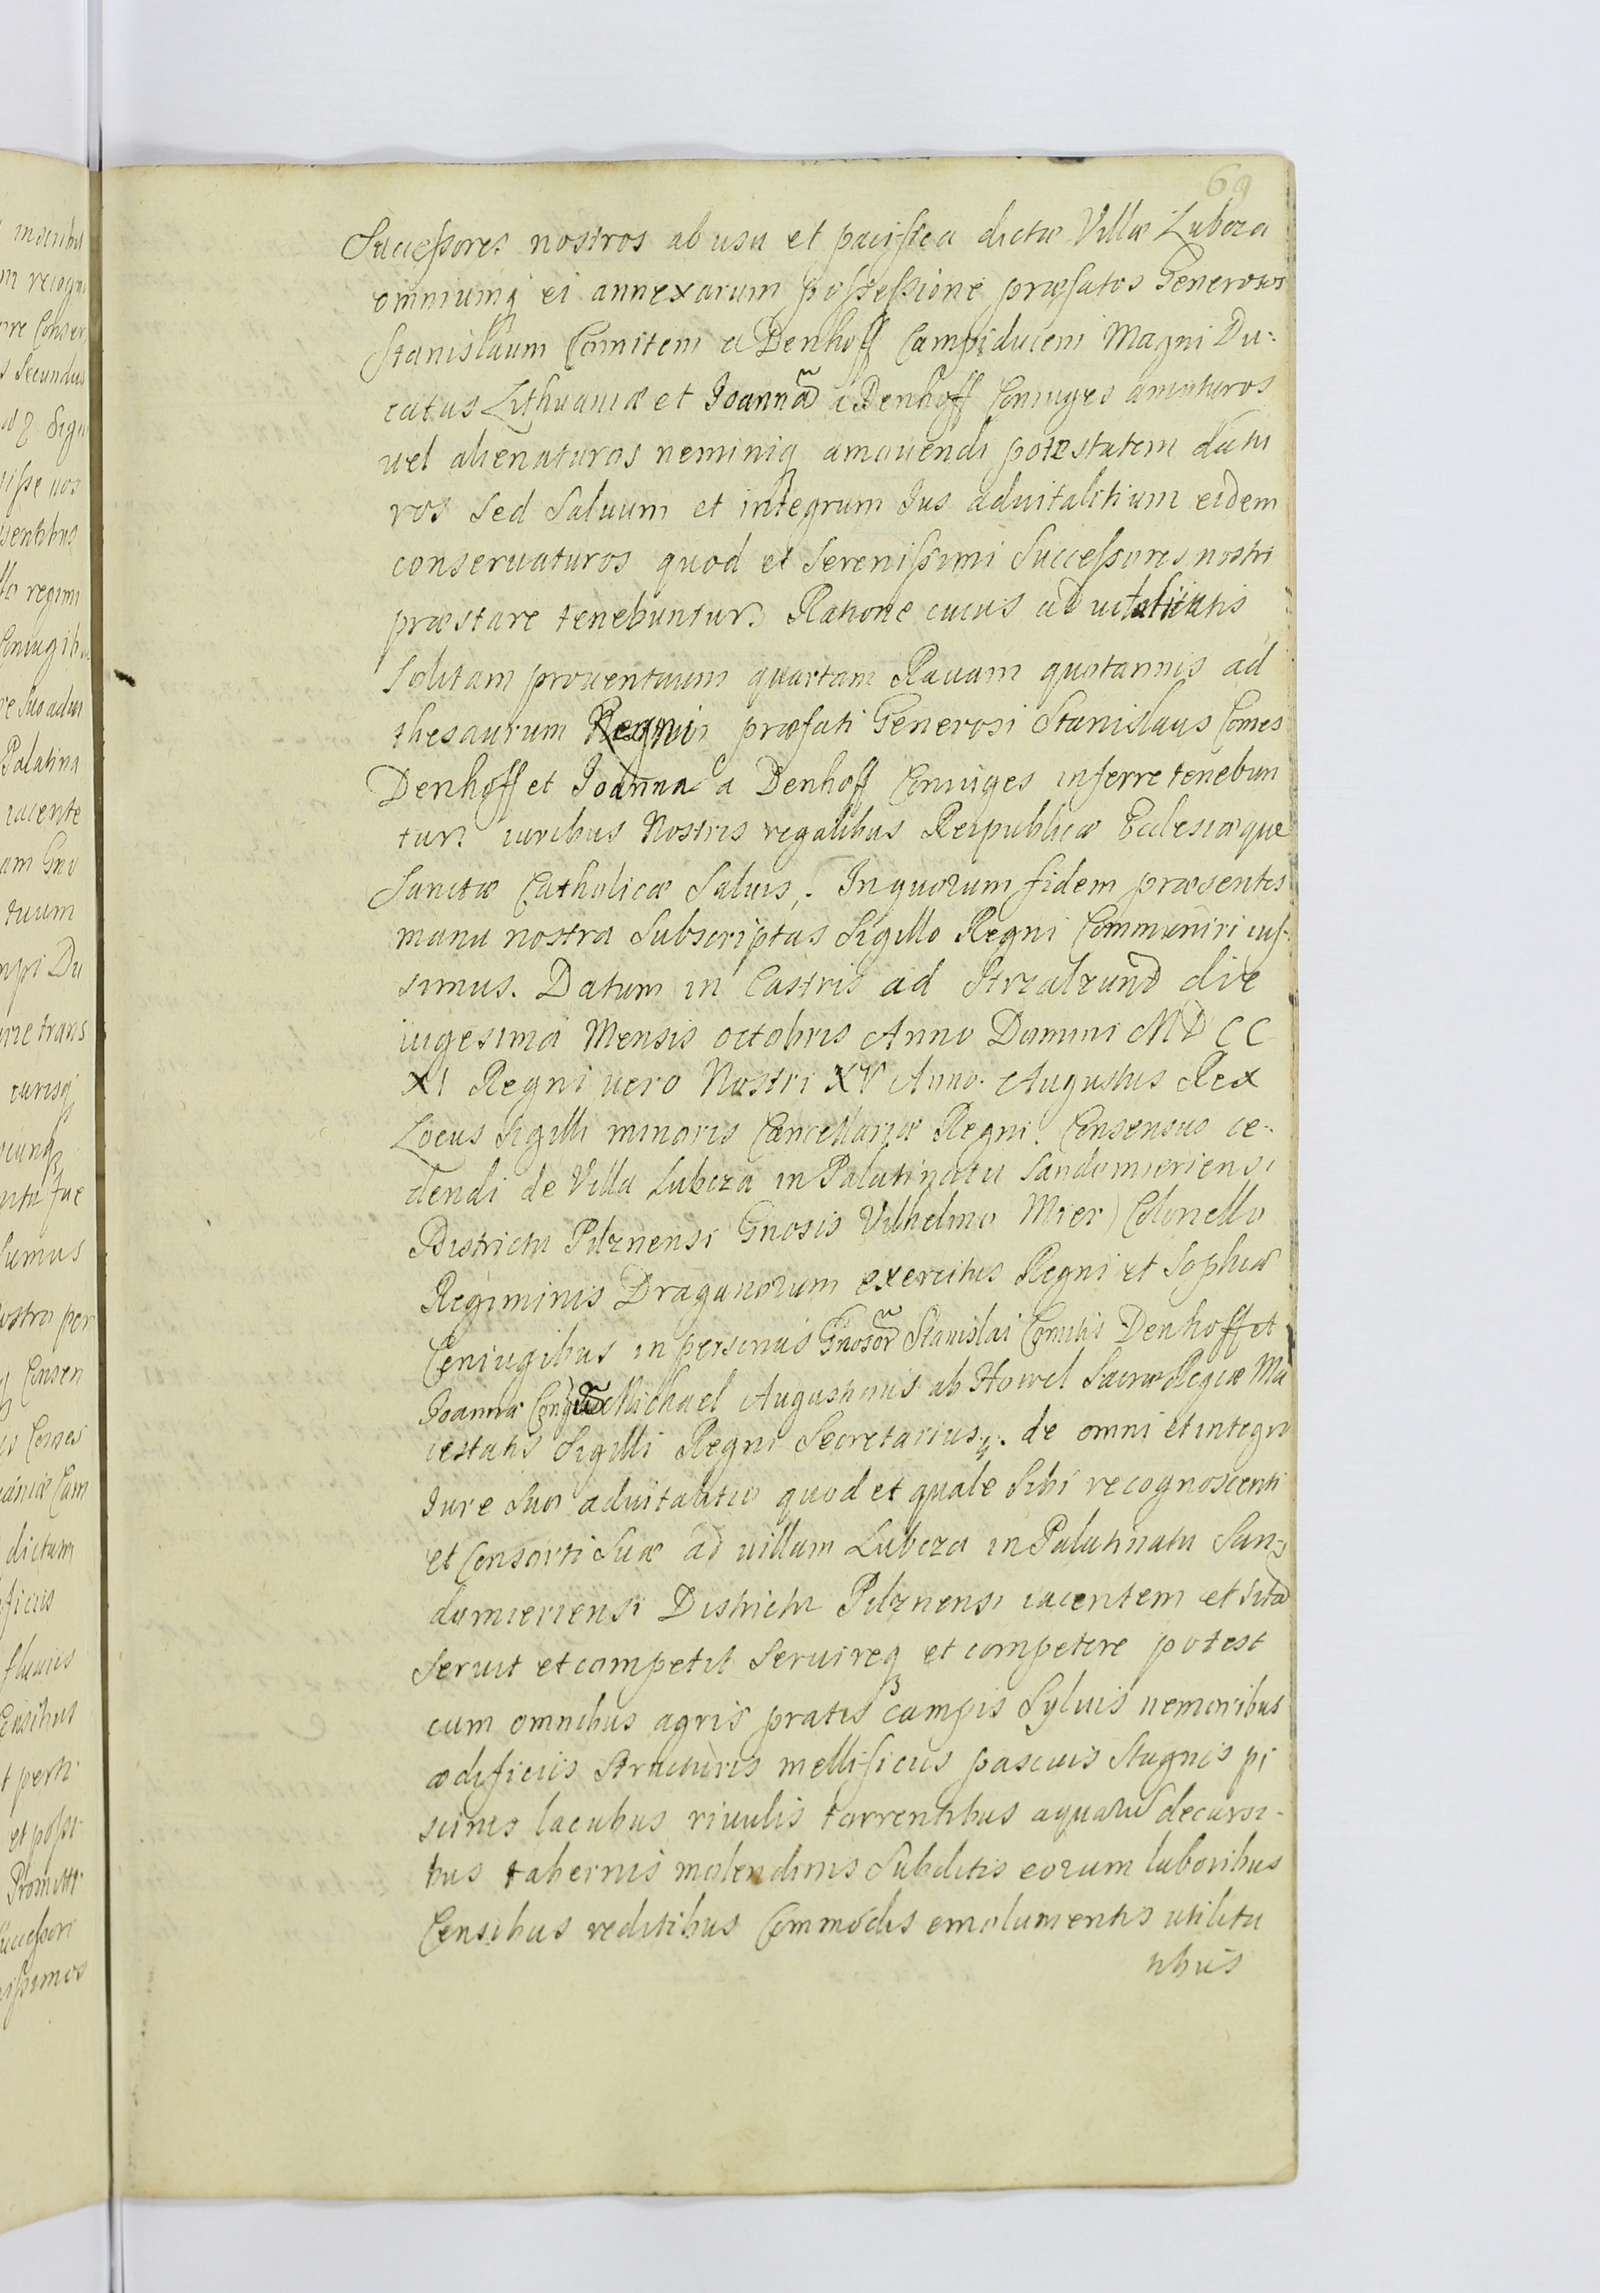 69
Successores nostros ab usu et pacifica dictæ Villæ Lubcza
omniumq ei annexarum possessione præfatos Generosos
Stanislaum Comitem a Denhoff Campiducem Magni Du:
catus Lithuaniæ et Joannã a Denhoff Coniuges amoturos
uel alienaturos neminiq amouendi potestatem datu
ros sed Saluum et integrum Jus aduitalitium eidem
conseruaturos quod et Serenissimi Successores nostri
præstare tenebuntur. Ratione cuius ad uitalitatis
solitam prouentuum quartam Rauam quotannis ad
thesaurum præfati Generosi Stanislaus Comes
Denhoff et Joanna a Denhoff Coniuges inferre tenebun
tur iuribus Nostris regalibus Reipublicæ Ecclesiæque
Sanctæ Catholicæ Saluis. In quorum fidem præsentes
manu nostra Subscriptas Sigillo Regni Communiri ius-
simus. Datum in Castris ad Strzalzund die
uigesima Mensis octobris Anno Domini MDCC
XI Regni uero Nostri XV Anno. Augustus Rex
Locus Sigilli minoris Cancellariæ Regni. Consensus ce-
dendi de Villa Lubcza in Palatinatu Sandomiriensi
Districtu Pilznensi Gnosis Vilhelmo Mier Colonello
Regiminis Draganorum exercitus Regni et Sophiæ
Coniugibus in personas Gnosor̃ Stanislai Comitis Denhoff et
Joannæ Michael Augustinus ab Howel Sacræ Regiæ Ma
iestatis Sigilli Regni Secretarius. de omni et integro
Jure Suo aduitalitio quod et quale Sibi recognoscenti
et Consorti Suæ ad uillam Lubcza in Palatinatu San-
domieriensi Districtu Pilznensi iacentem et sitã
Seruit et competit Seruireq et competere potest
cum omnibus agris pratis campis Syluis nemoribus
ædificiis Structuris mellificiis pascuis Stagnis pi
scinis lacubus riuulis torrentibus aquarũ decursi-
bus tabernis molendinis Subditis eorum laboribus
Censibus reditibus Commodis emolumentis utilita
tibus